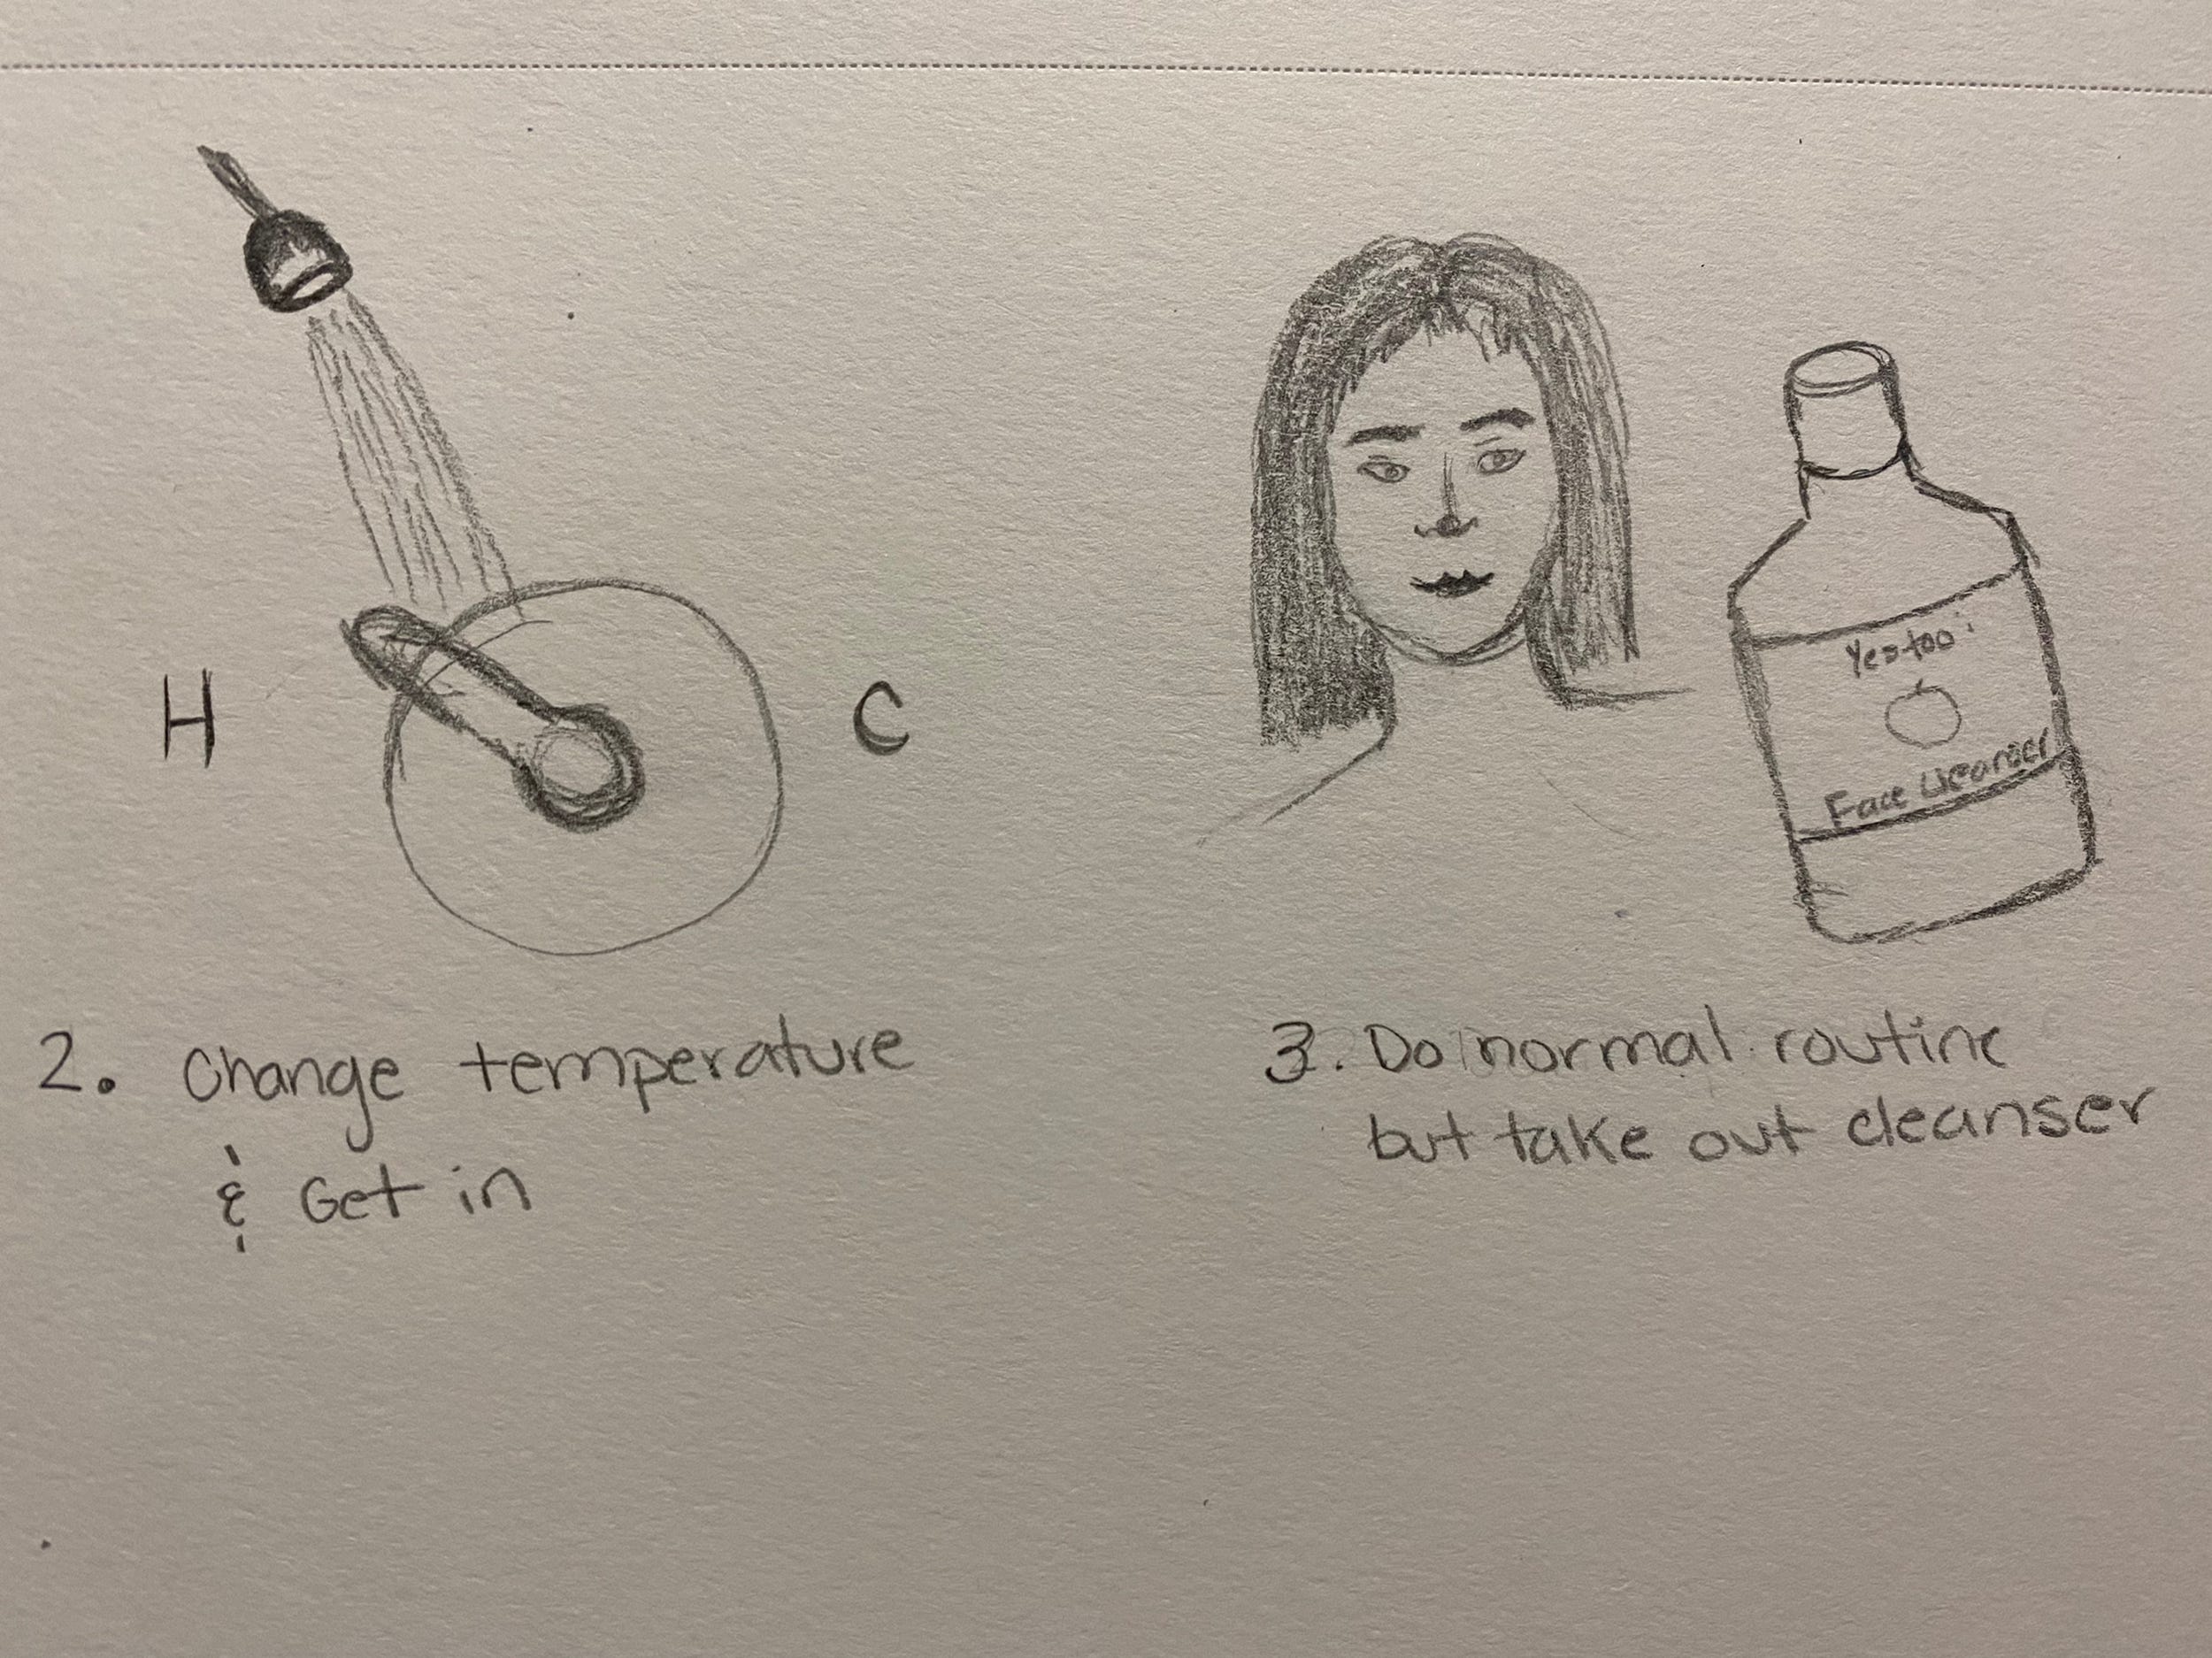 H
C
Yes too:
Face Cleanser
2. Change temperature
& Get in
3. Do normal routine
but take out cleanser